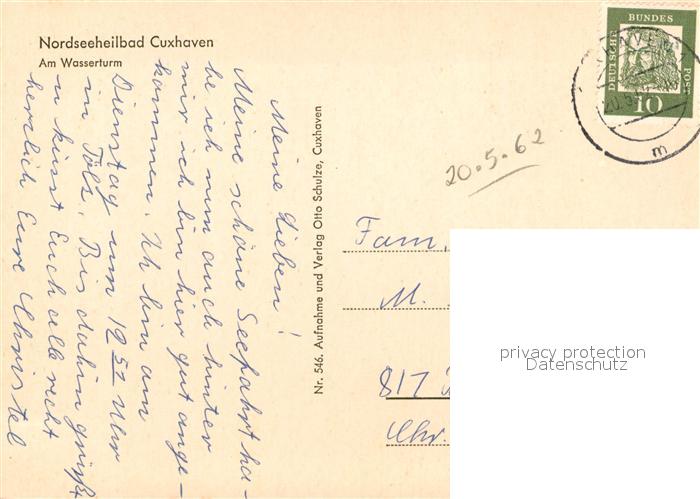 Nordseeheilbad Cuxhaven
Am Wasserturm
Meine Lieben!
Meine schöne Seefahrt ha-
be ich nun auch hinter
mir ich bin hier gut ange-
kommen. Ich bin am
Dienstag um 19 57 Uhr
in Tölz. Bis dahin grüßt
u küsst Euch alle recht
herzlich Eure Christel
Nr. 546. Aufnahme und Verlag Otto Schulze, Cuxhaven
DEUTSCHE
BUNDES
POST
10
m
20.5.62
Fam.
M.
817
Chr.
privacy protection
Datenschutz